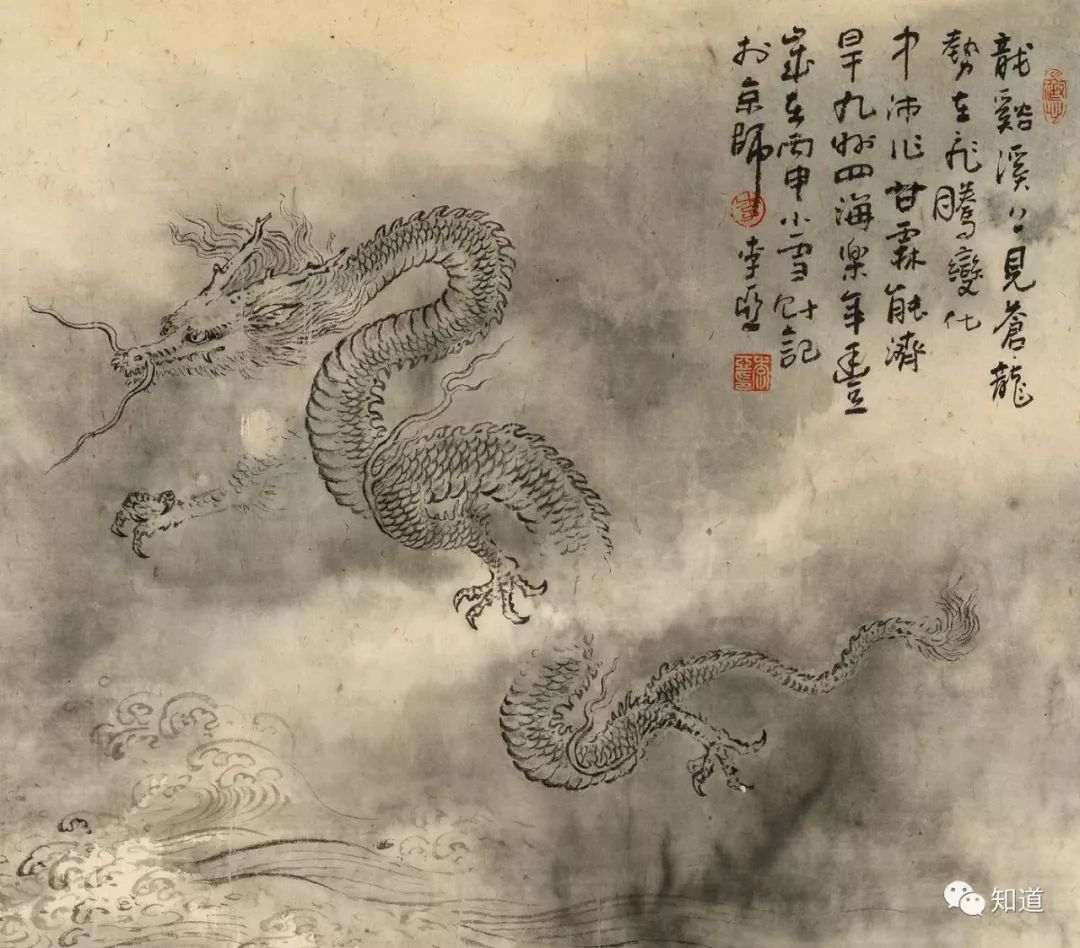 龍谿溪見蒼龍
勢在飛騰變化
中沛作甘霖能濟
旱九州四海樂年豐
歲在丙申小雪時記
於京師 李
知道